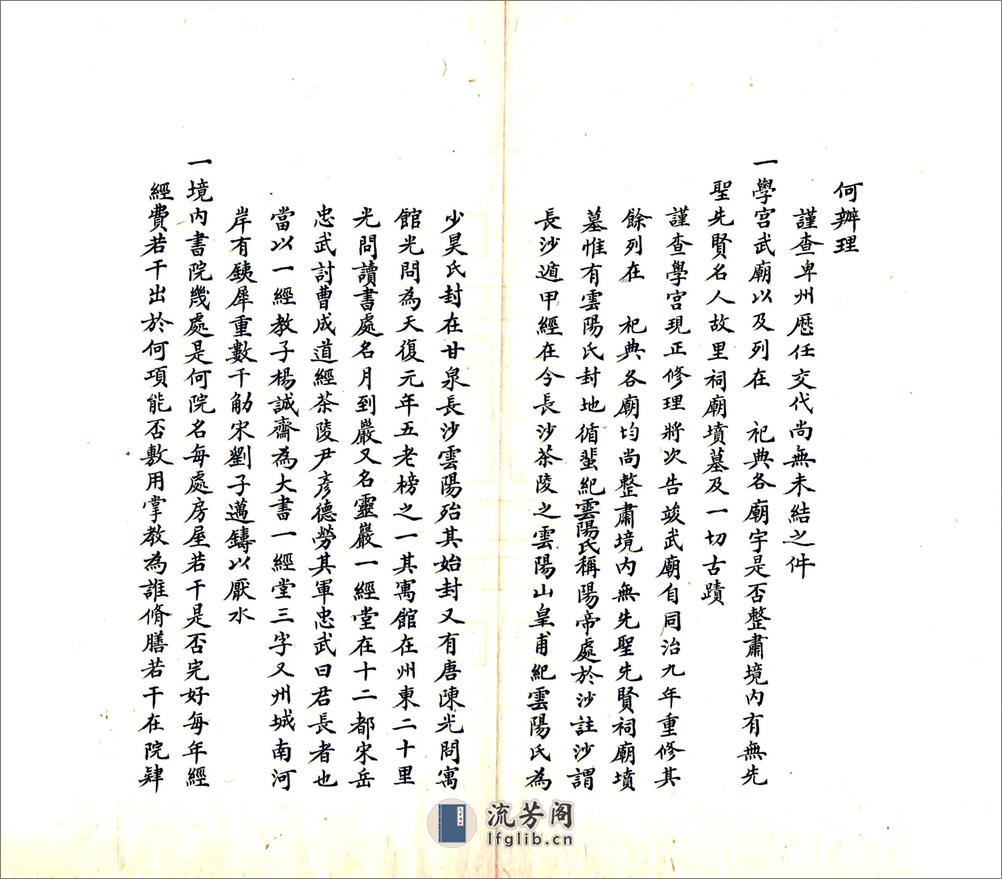 何辦理
謹查卑州歷任交代尚無未結之件
一學宮武廟以及列在　祀典各廟宇是否整肅境內有無先
聖先賢名人故里祠廟墳墓及一切古蹟
謹查學宮現正修理將次告竣武廟自同治九年重修其
餘列在　祀典各廟均尚整肅境內無先聖先賢祠廟墳
墓惟有雲陽氏封地循蜚紀雲陽氏稱陽帝處於沙註沙謂
長沙遁甲經在今長沙茶陵之雲陽山皇甫紀雲陽氏為
少昊氏封在甘泉長沙雲陽殆其始封又有唐陳光問寓
館光問為天復元年五老榜之一其寓館在州東二十里
光問讀書處名月到巖又名靈巖一經堂在十二都宋岳
忠武討曹成道經茶陵尹彥德勞其軍忠武曰君長者也
當以一經教子楊誠齋為大書一經堂三字又州城南河
岸有銕犀重數千觔宋劉子邁鑄以厭水
一境內書院幾處是何院名每處房屋若干是否完好每年經
經費若干出於何項能否敷用掌教為誰脩膳若干在院肄
流芳阁
lfglib.cn